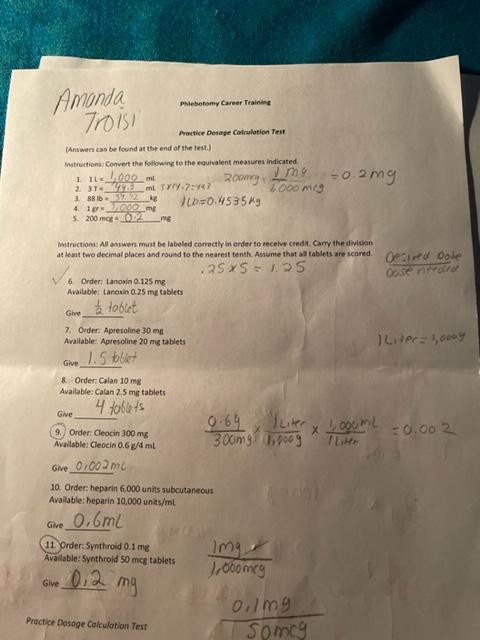 Amanda
Troisi
Phlebotomy Career Training
Practice Dosage Calculation Test
(Answers can be found at the end of the test.)
Instructions: Convert the following to the equivalent measures indicated.
1. 1 L = 1,000 mL
2. 3 T = 44.3 mL 3x14.7=443
3. 88 lb = kg 1LB=0.4535kg
4. 1 gr = 1,000 mg
5. 200 mcg = 0.2 mg
200mcg x 1 mg / 1,000 mcg = 0.2 mg
Instructions: All answers must be labeled correctly in order to receive credit. Carry the division
at least two decimal places and round to the nearest tenth. Assume that all tablets are scored.
.25 x 5 = 1.25
Desired Dose
Dose needed
6. Order: Lanoxin 0.125 mg
Available: Lanoxin 0.25 mg tablets
Give 1/2 tablet
7. Order: Apresoline 30 mg
Available: Apresoline 20 mg tablets
1 Liter = 1,000g
Give 1.5 tablet
8. Order: Calan 10 mg
Available: Calan 2.5 mg tablets
Give 4 tablets
9. Order: Cleocin 300 mg
Available: Cleocin 0.6 g/4 mL
0.64 / 300mg x 1 Liter / 1,000g x 1,000mL / 1 Liter = 0.002
Give 0.002mL
10. Order: heparin 6,000 units subcutaneous
Available: heparin 10,000 units/mL
Give 0.6mL
11. Order: Synthroid 0.1 mg
Available: Synthroid 50 mcg tablets
1mg / 1,000mcg
Give 0.2 mg
0.1mg / 50mcg
Practice Dosage Calculation Test